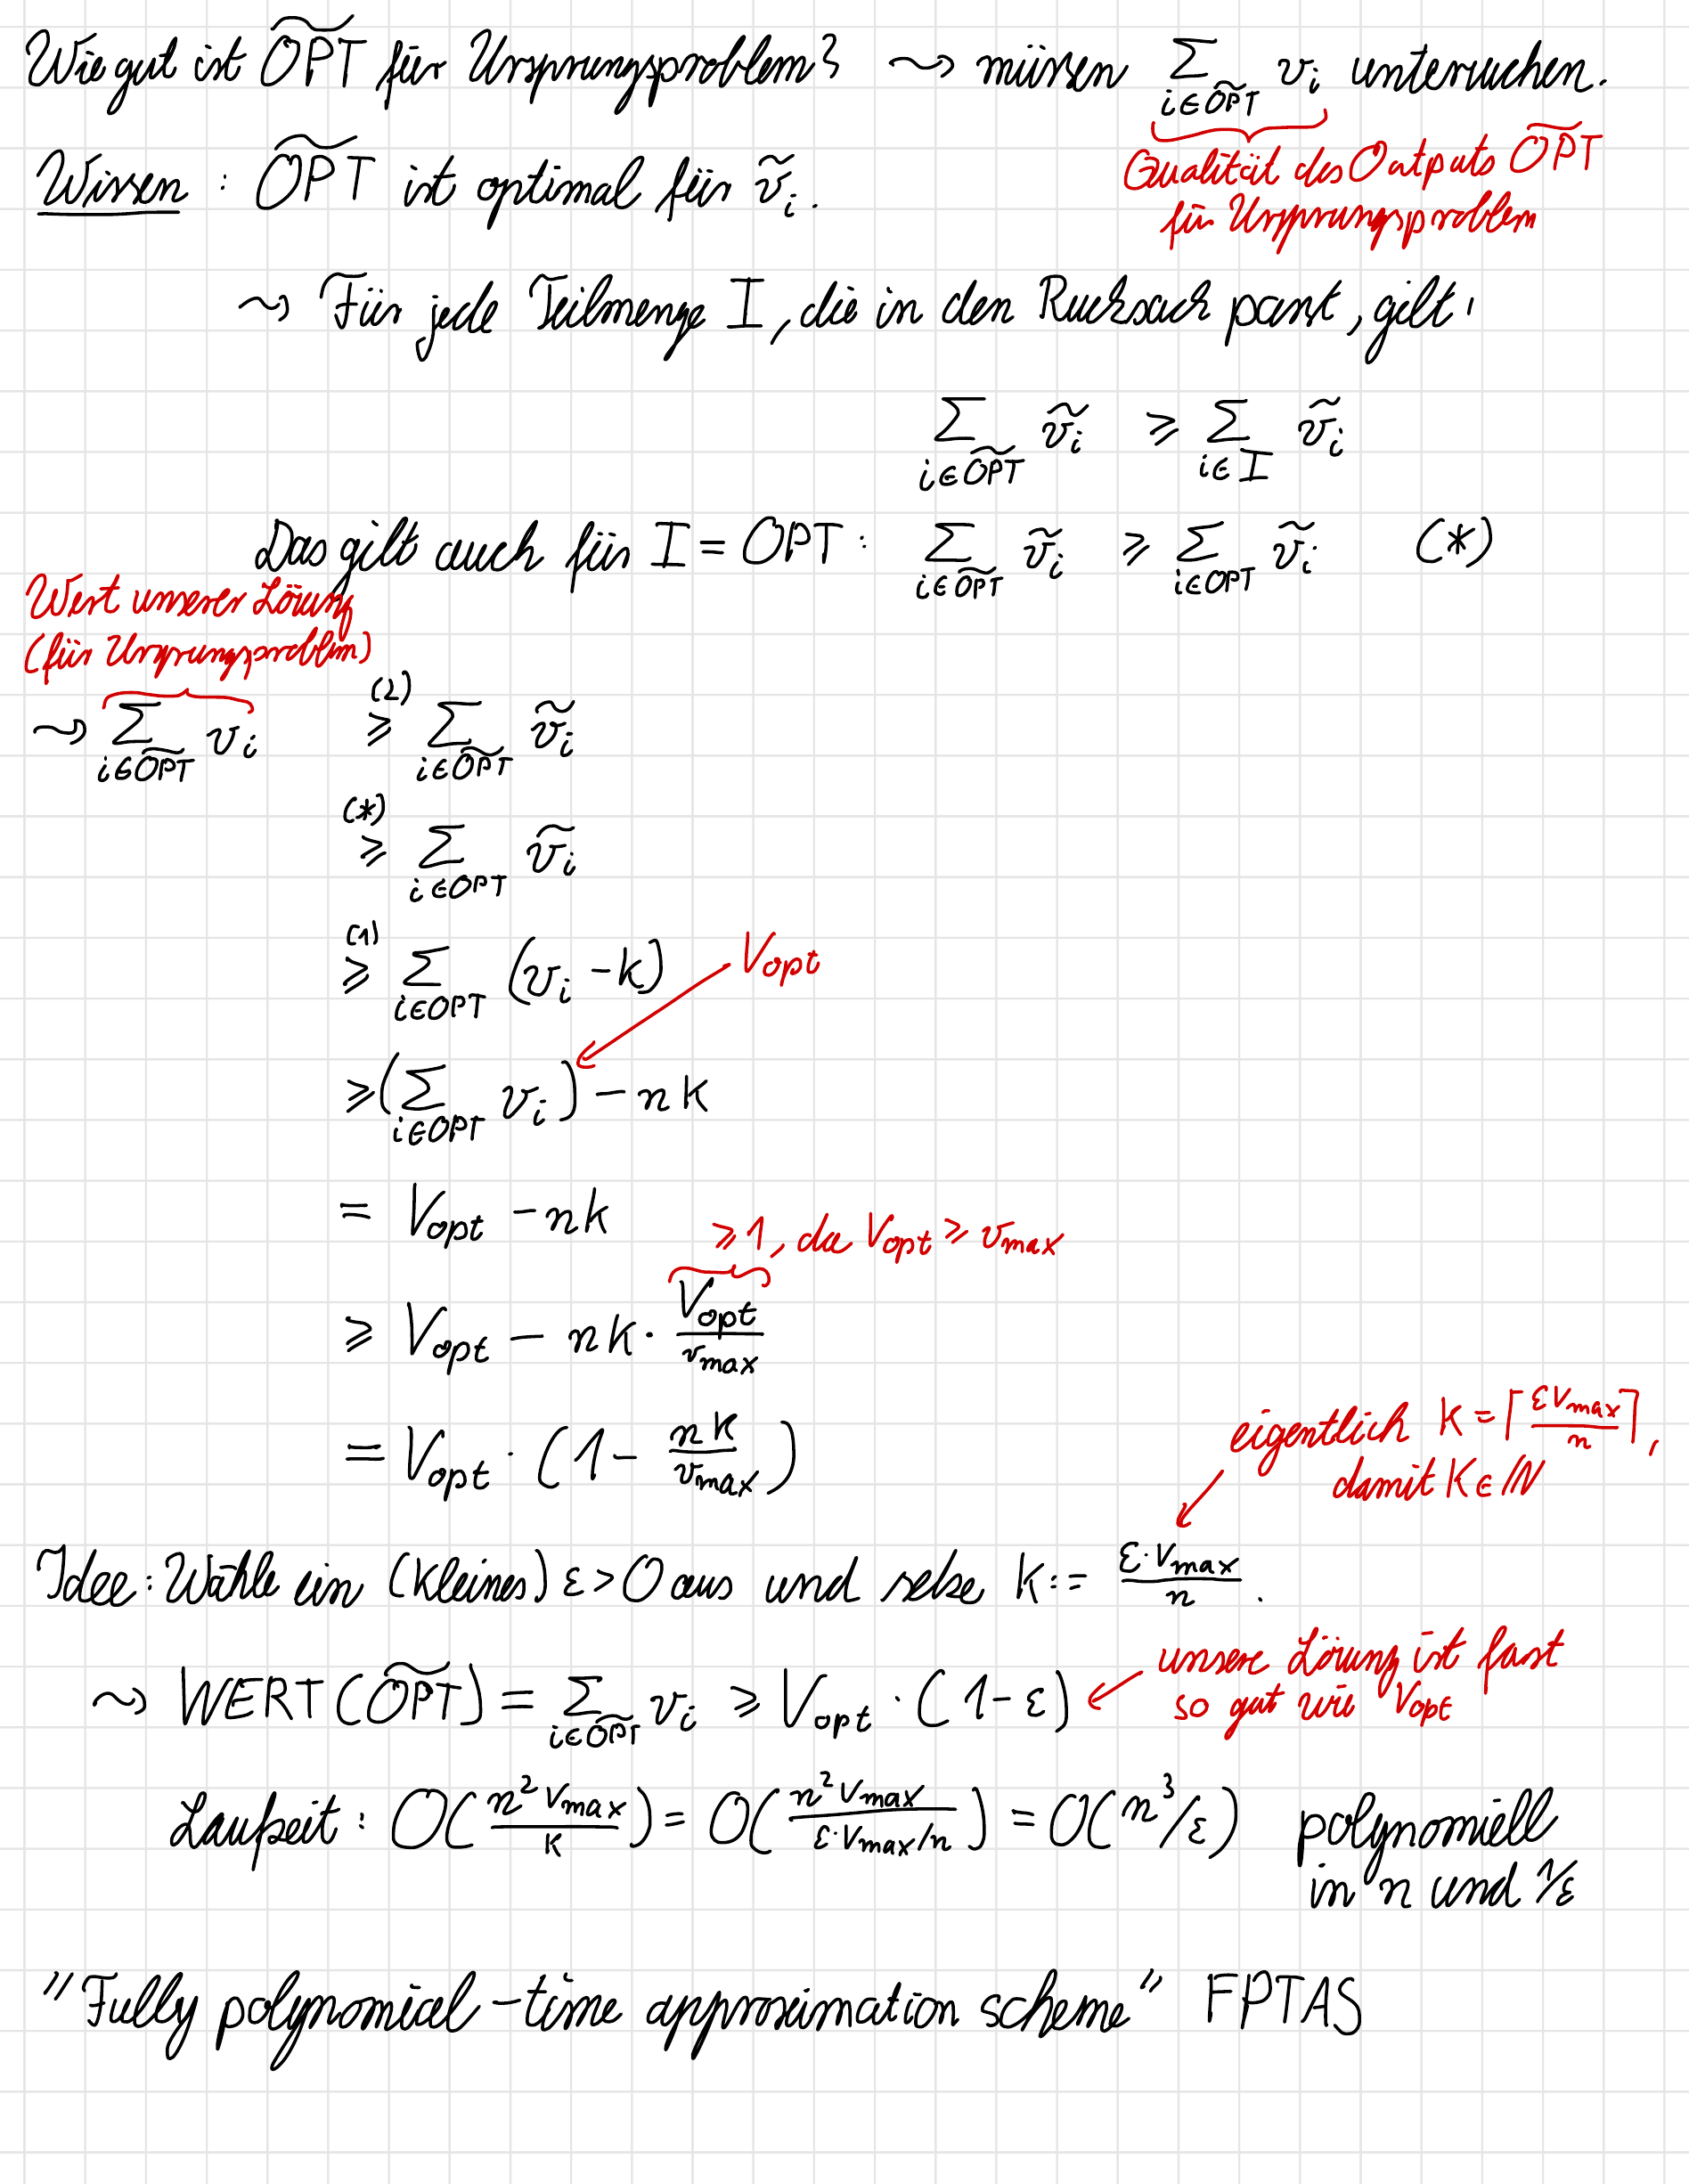 Wie gut ist O͂PT für Ursprungsproblem? ⇝ müssen ∑_{i∈O͂PT} v_i untersuchen.
Qualität des Outputs O͂PT
für Ursprungsproblem
Wissen: O͂PT ist optimal für ṽ_i.
⇝ Für jede Teilmenge I, die in den Rucksack passt, gilt:
∑_{i∈O͂PT} ṽ_i ≥ ∑_{i∈I} ṽ_i
Das gilt auch für I = OPT: ∑_{i∈O͂PT} ṽ_i ≥ ∑_{i∈OPT} ṽ_i (*)
Wert unserer Lösung
(für Ursprungsproblem)
⇝ ∑_{i∈O͂PT} v_i ≥^{(2)} ∑_{i∈O͂PT} ṽ_i
≥^{(*)} ∑_{i∈OPT} ṽ_i
≥^{(1)} ∑_{i∈OPT} (v_i - k) V_opt
≥ (∑_{i∈OPT} v_i) - nk
= V_opt - nk
≥ 1, da V_opt ≥ v_max
≥ V_opt - nk · V_opt/v_max
= V_opt · (1 - nk/v_max)
eigentlich K = ⌈εV_max/n⌉,
damit K ∈ ℕ
Idee: Wähle ein (kleines) ε > 0 aus und setze k := ε·V_max/n.
⇝ WERT(O͂PT) = ∑_{i∈O͂PT} v_i ≥ V_opt · (1-ε)
unsere Lösung ist fast
so gut wie V_opt
Laufzeit: O(n² V_max/K) = O(n² V_max/(ε·V_max/n)) = O(n³/ε) polynomiell
in n und 1/ε
"Fully polynomial-time approximation scheme" FPTAS